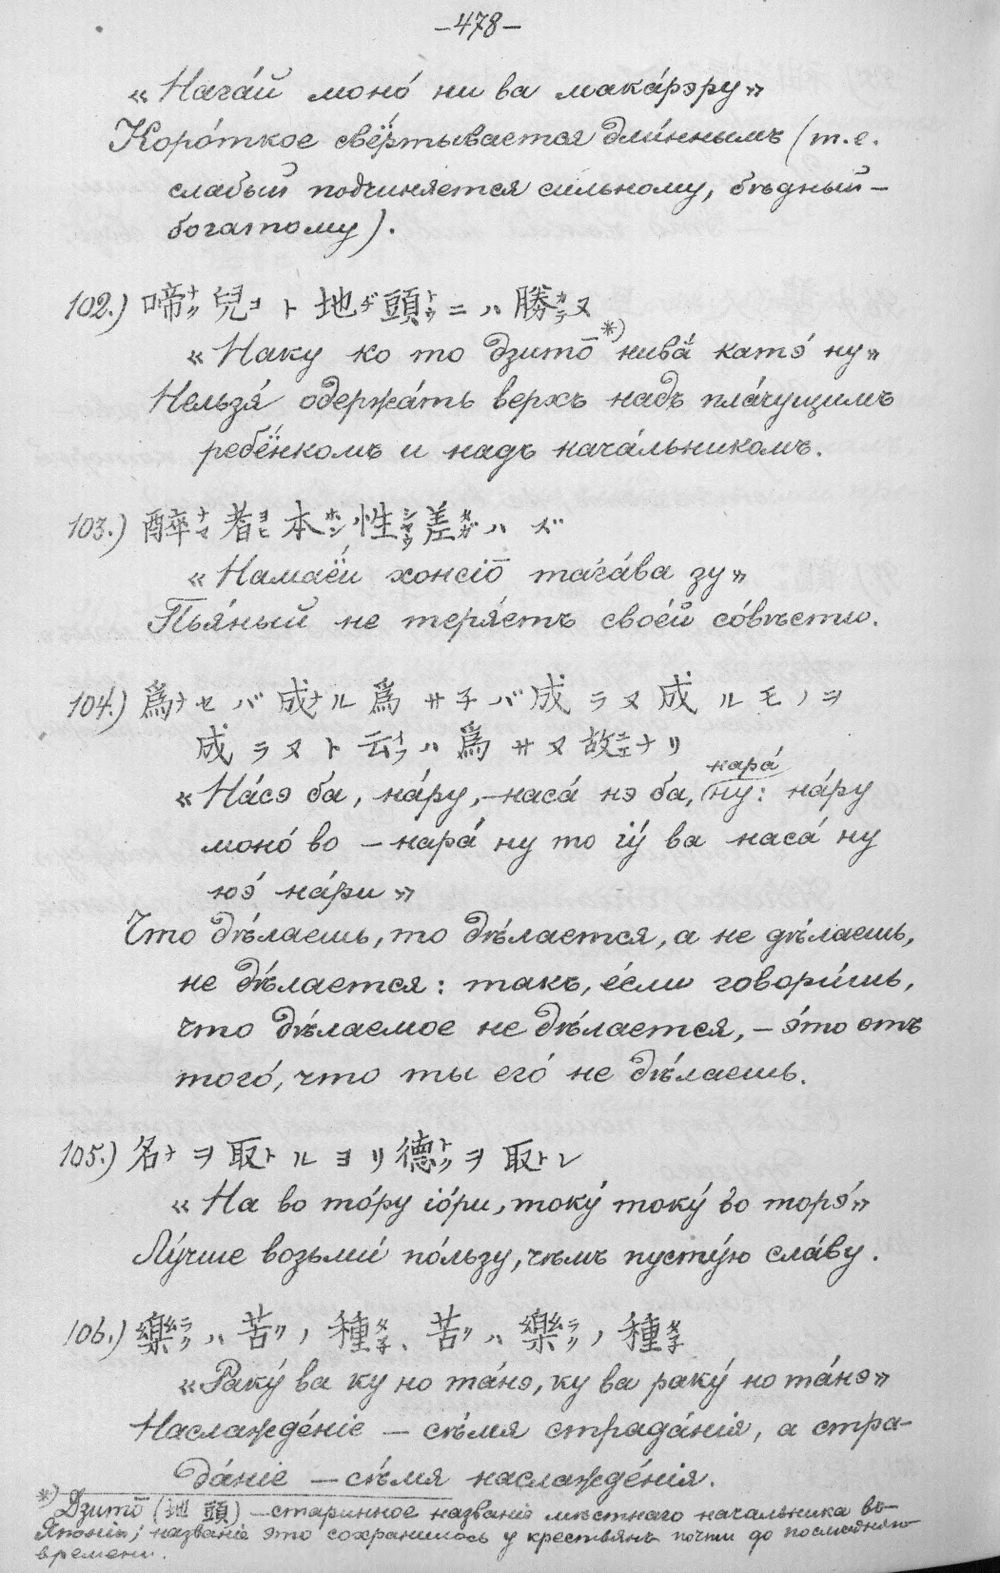 –478–
«Нага́й моно́ ни ва мака́рэру»
Коро́ткое свё́ртывается дли́ннымъ (т.е.
слабый подчиняется сильному, бѣдный–
богатому).
102.) 啼ナク 兒コ ト 地ヂ 頭トウ ニ ハ 勝カタ ヌ
«Наку ко то дзито̄ *) нива́ катэ́ ну»
Нельзя́ одержа́ть верхъ надъ пла́чущимъ
ребё́нкомъ и надъ нача́льникомъ.
103.) 醉ナマ 者ヨヒ 本ホン 性シヤウ 差タガ ハ ズ
«Намаё́и хонсіо̄ тага́ва зу»
Пья́ный не теря́етъ свое́й со́вѣсти.
104.) 爲ナ セ バ 成ナ ル 爲 サ子 バ 成 ラ ヌ 成 ル モ ノ ヲ
成 ラ ヌ ト 云イフ ハ 爲 サ ヌ 故ユエ ナ リ
нара́
«На́сэ ба, на́ру,–наса́ нэ ба, ну: на́ру
моно́ во – нара́ ну то іу́ ва наса́ ну
юэ́ на́ри»
Что дѣ́лаешь, то дѣ́лается, а не дѣ́лаешь,
не дѣ́лается: такъ, е́сли говори́шь,
что дѣ́лаемое не дѣ́лается, – э́то отъ
того́, что ты его́ не дѣ́лаешь.
105.) 名ナ ヲ 取ト ル ヨ リ 德トク ヲ 取ト レ
«На во то́ру іо́ри, току́ току́ во торэ́»
Лу́чше возьми́ по́льзу, чѣмъ пусту́ю сла́ву.
106.) 樂ラク ハ 苦ク ノ 種タ子、苦ク ハ 樂ラク ノ 種タ子
«Раку́ ва ку но та́нэ, ку ва раку́ но та́нэ»
Наслажде́ніе – сѣ́мя страда́нія, а стра-
да́ніе – сѣ́мя наслажде́нія.
*) Дзито̄ (地頭) – старинное названіе мѣстнаго начальника въ
Японіи; названіе это сохранилось у крестьянъ почти до послѣдняго
времени.